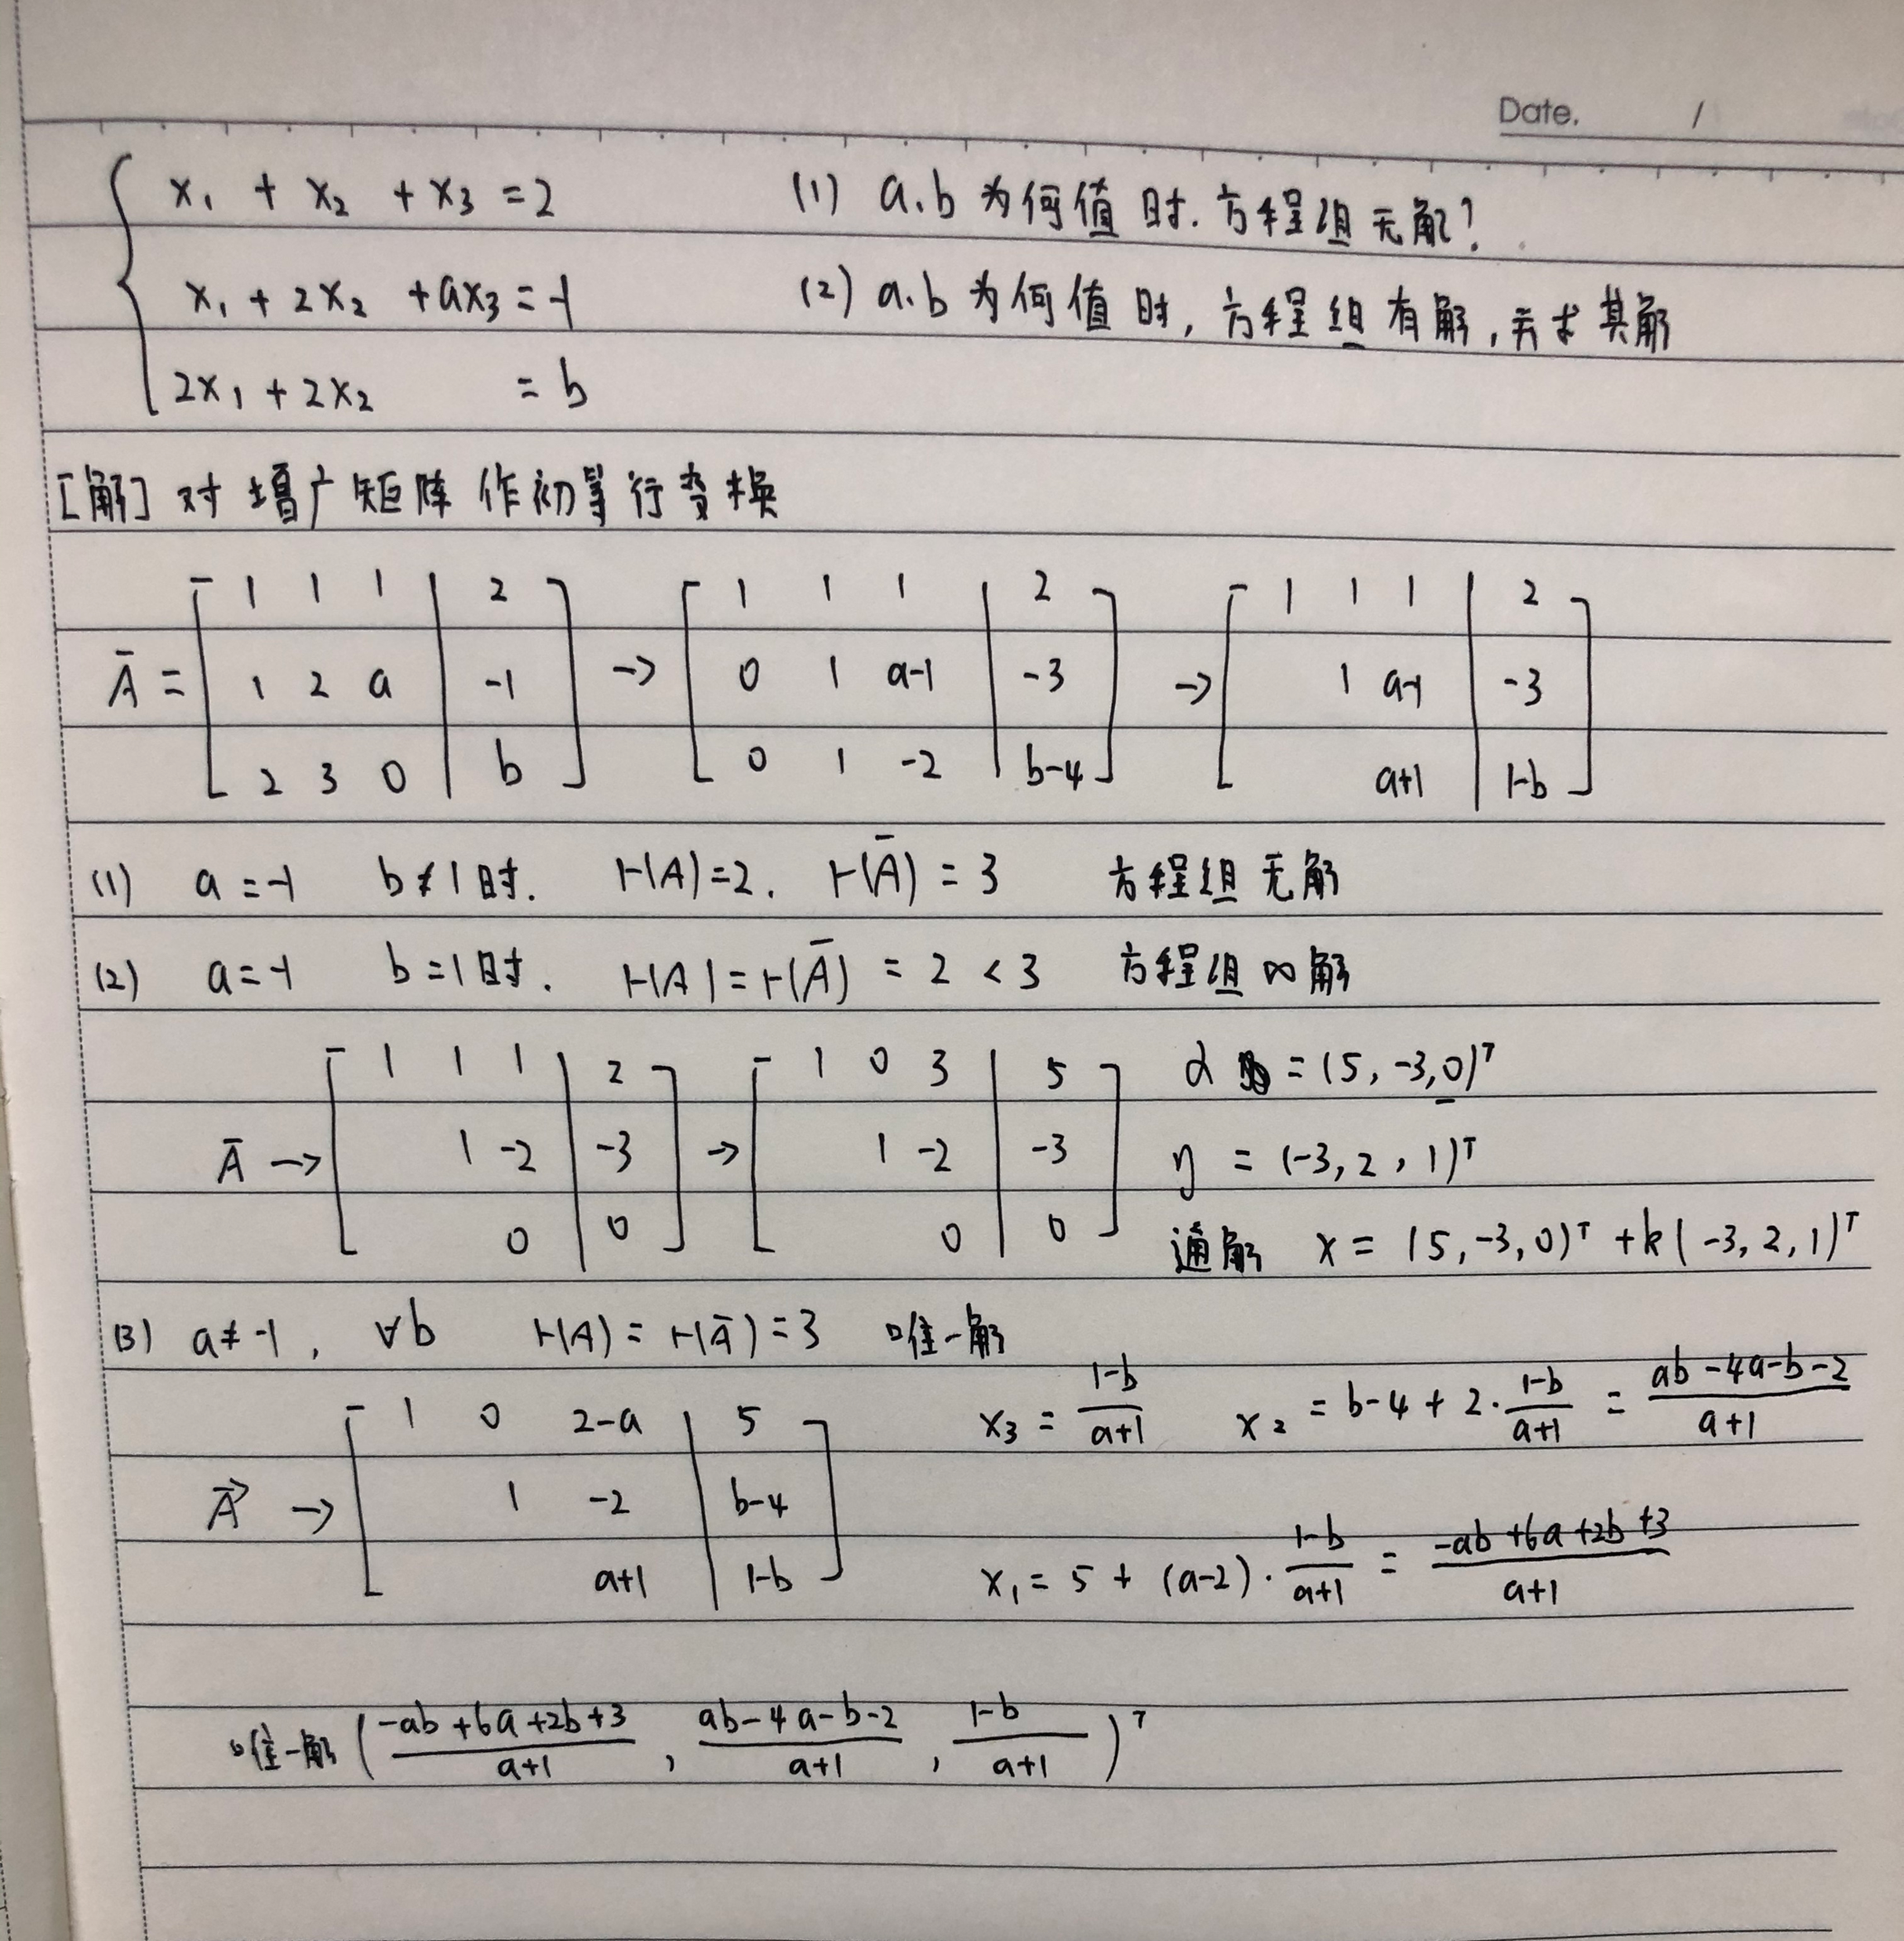 Date. /
x₁ + x₂ + x₃ = 2 (1) a.b 为何值时.方程组无解?
x₁ + 2x₂ + ax₃ = -1 (2) a.b 为何值时,方程组有解,并求其解
2x₁ + 2x₂ = b
[解] 对增广矩阵作初等行变换
Ā = [1 1 1 | 2; 1 2 a | -1; 2 3 0 | b] → [1 1 1 | 2; 0 1 a-1 | -3; 0 1 -2 | b-4] → [1 1 1 | 2; 1 a-1 | -3; a+1 | 1-b]
(1) a = -1 b ≠ 1时. r(A)=2. r(Ā) = 3 方程组无解
(2) a = -1 b = 1时. r(A) = r(Ā) = 2 < 3 方程组∞解
Ā → [1 1 1 | 2; 1 -2 | -3; 0 | 0] → [1 0 3 | 5; 1 -2 | -3; 0 | 0] α = (5, -3, 0)ᵀ
η = (-3, 2, 1)ᵀ
通解 x = (5, -3, 0)ᵀ + k(-3, 2, 1)ᵀ
(3) a ≠ -1, ∀b r(A) = r(Ā) = 3 唯一解
Ā → [1 0 2-a | 5; 1 -2 | b-4; a+1 | 1-b] x₃ = (1-b)/(a+1) x₂ = b-4+2·(1-b)/(a+1) = (ab-4a-b-2)/(a+1)
x₁ = 5 + (a-2)·(1-b)/(a+1) = (-ab+6a+2b+3)/(a+1)
唯一解 ((-ab+6a+2b+3)/(a+1), (ab-4a-b-2)/(a+1), (1-b)/(a+1))ᵀ